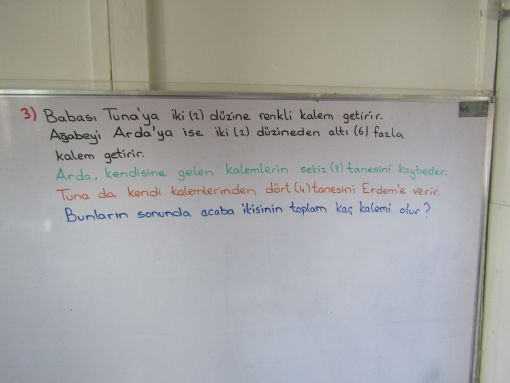 3) Babası Tuna'ya iki (2) düzine renkli kalem getirir.
Ağabeyi Arda'ya ise iki (2) düzineden altı (6) fazla
kalem getirir.
Arda, kendisine gelen kalemlerin sekiz (8) tanesini kaybeder.
Tuna da kendi kalemlerinden dört (4) tanesini Erdem'e verir.
Bunların sonunda acaba ikisinin toplam kaç kalemi olur?